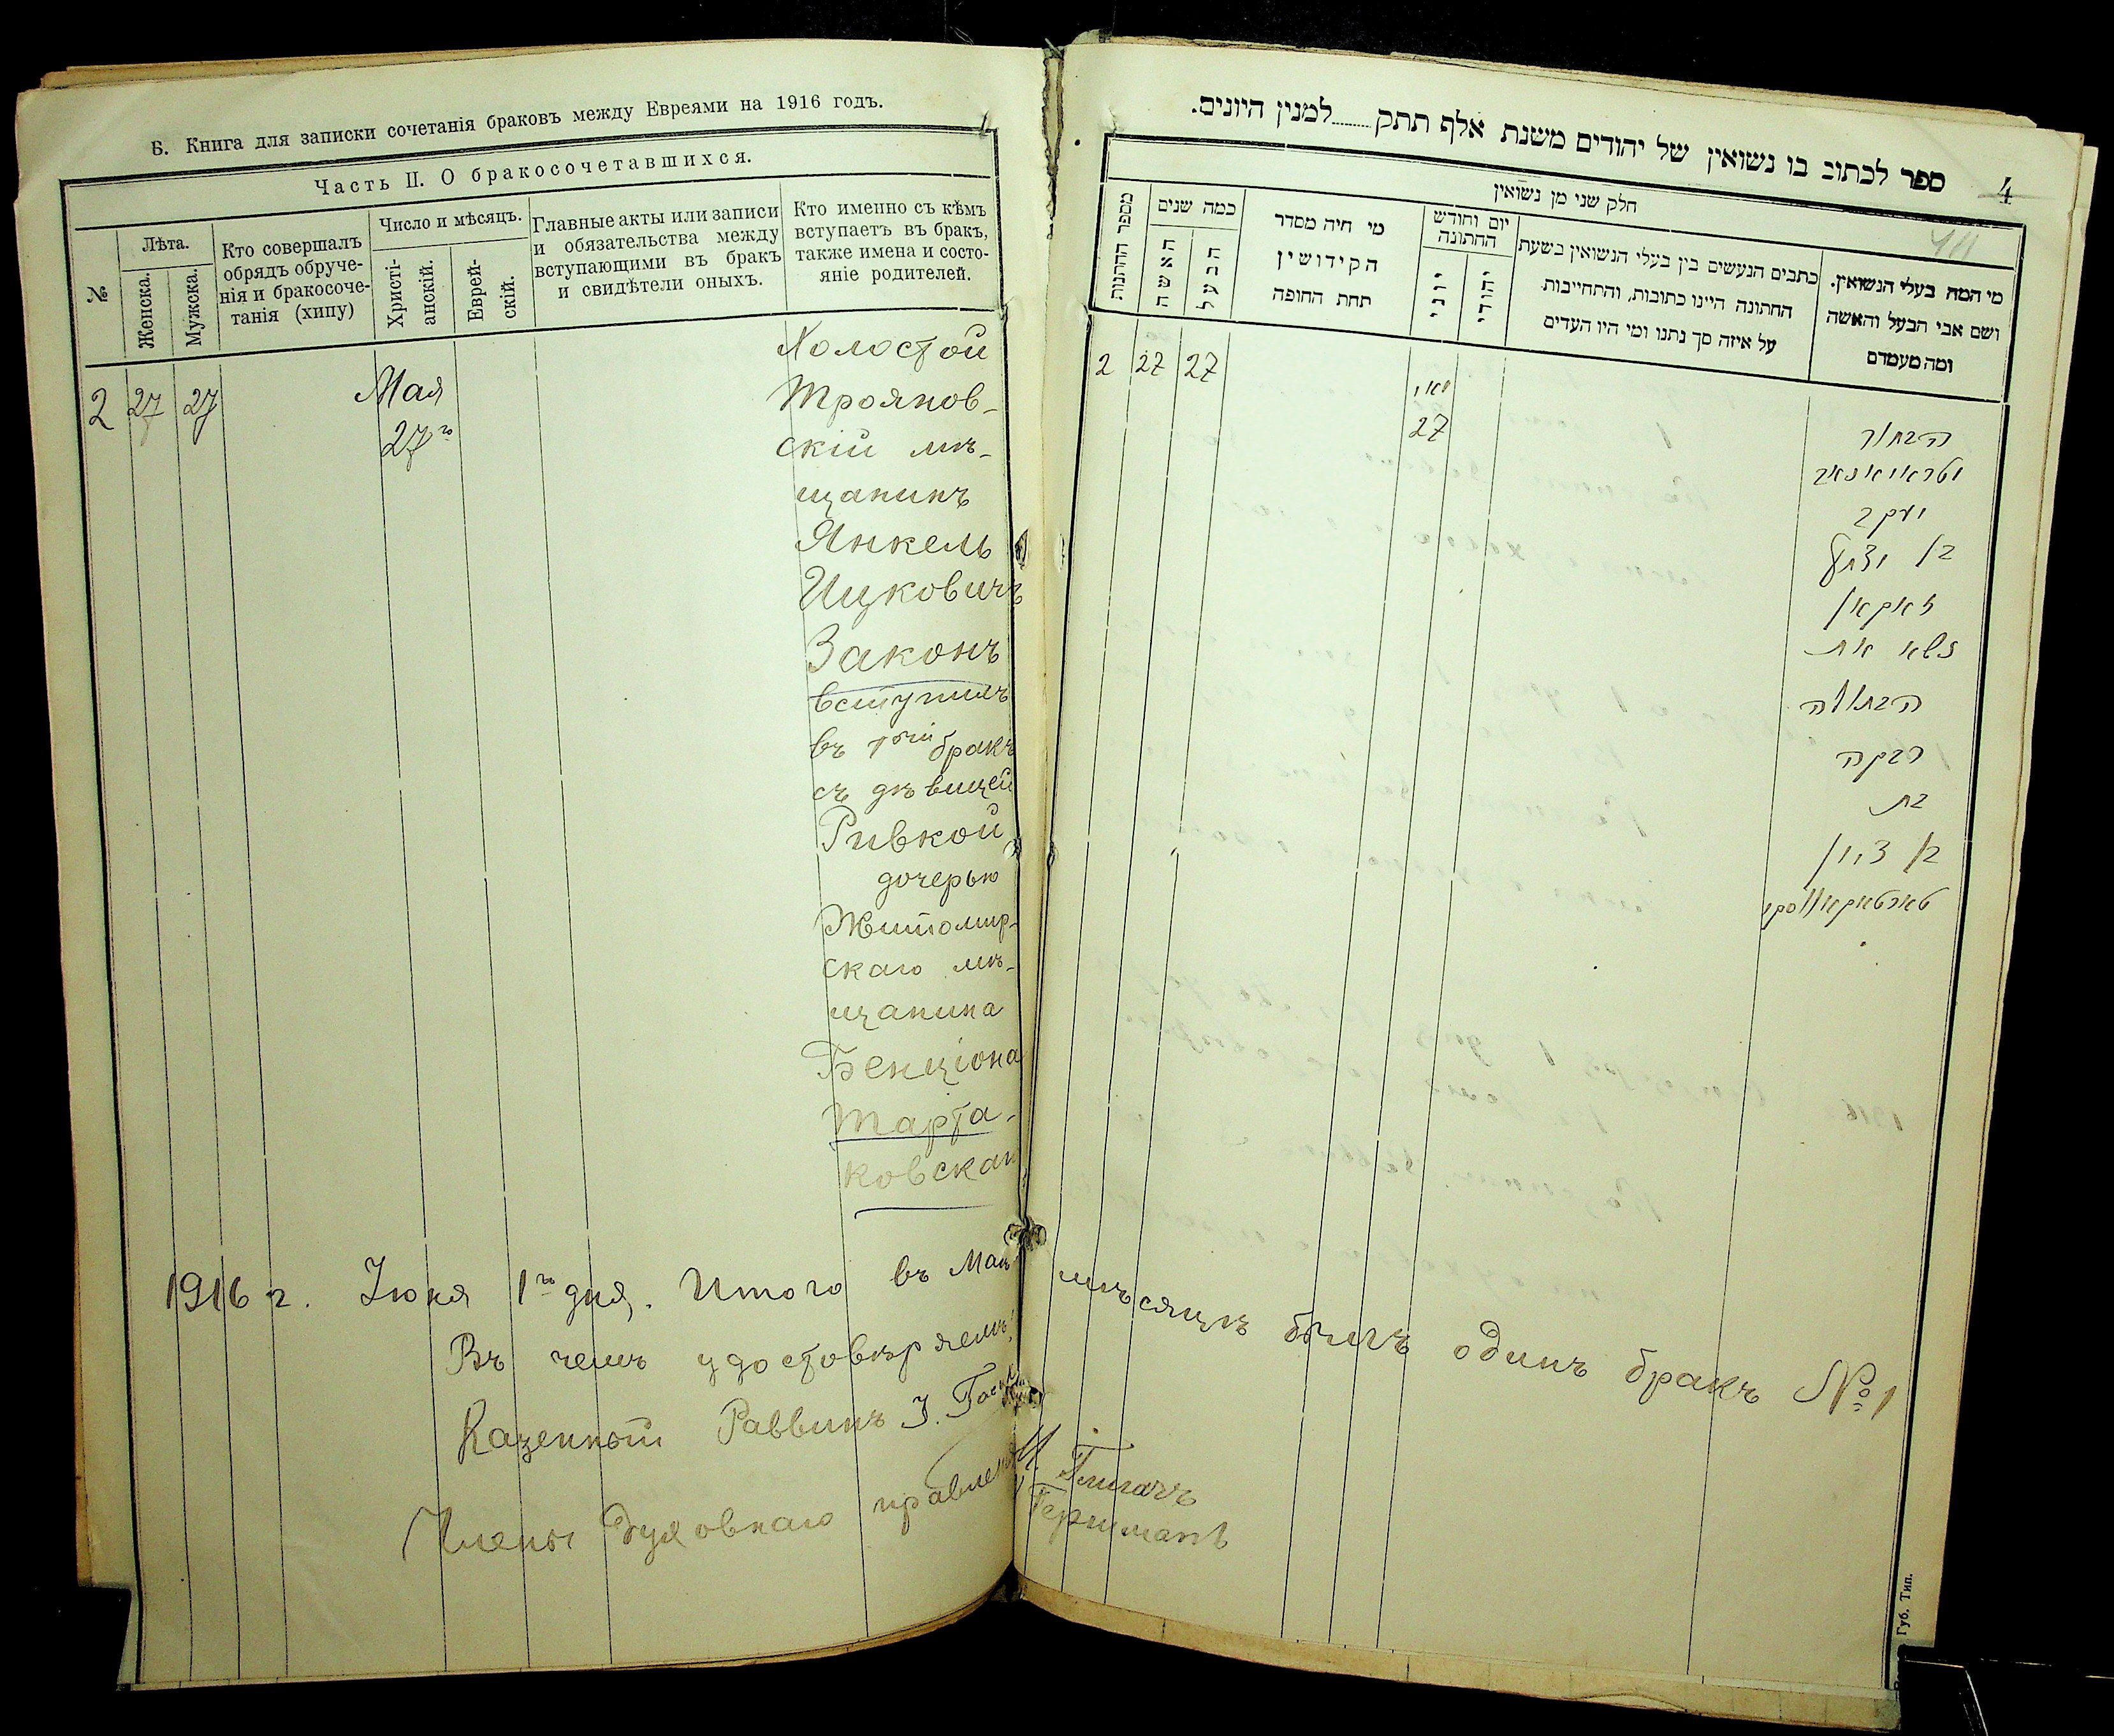 Б. Книга для записки сочетанія браковъ между Евреями на 1916 годъ.
Часть II. О бракосочетавшихся.
№
Лѣта.
Женска.
Мужска.
Кто совершалъ
обрядъ обруче-
нія и бракосоче-
танія (хипу)
Число и мѣсяцъ.
Христі-
анскій.
Еврей-
скій.
Главные акты или записи
и обязательства между
вступающими въ бракъ
и свидѣтели оныхъ.
Кто именно съ кѣмъ
вступаетъ въ бракъ,
также имена и состо-
яніе родителей.
2 27 27
Мая
27го
Холостой
Троянов-
скій мѣ-
щанинъ
Янкель
Ицковичъ
Законъ
вступилъ
въ 1ый бракъ
съ дѣвицей
Ривкой
дочерью
Житомир-
скаго мѣ-
щанина
Бенціона
Тарта-
ковская
1916 г. Іюня 1го дня. Итого въ Маѣ мѣсяцѣ былъ одинъ бракъ № 1
Въ чемъ удостовѣряемъ:
Казенный Раввинъ І.
Члены Духовнаго правленія
ספר לכתוב בו נשואין של יהודים משנת אלף תתק למנין היונים.
4
חלק שני מן נשואין
מספר החתונות
כמה שנים
האשה
הבעל
מי היה מסדר
הקידושין
תחת החופה
יום וחודש
החתונה
יוני
יהודי
כתבים הנעשים בין בעלי הנשואין בשעת
החתונה היינו כתובות, והתחייבות
על איזה סך נתנו ומי היו העדים
מי המה בעלי הנשואין.
ושם אבי הבעל והאשה
ומה מעמדם
2 27 27
מאי
27
הבחור
יעקב
בן יצחק
זאקאן
נשא את
הבתולה
רבקה
בת
בן ציון
טארטאקאווסקי
Губ. Тип.